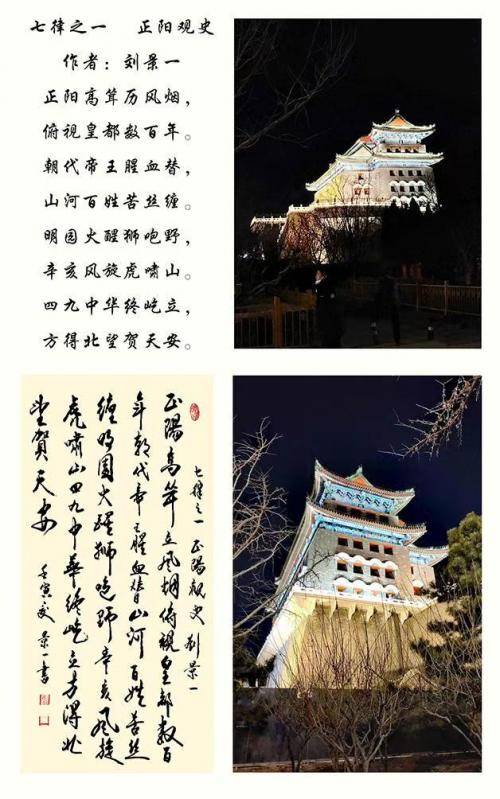 七律之一 正阳观史
作者：刘景一
正阳高耸历风烟，
俯视皇都数百年。
朝代帝王腥血替，
山河百姓苦丝缠。
明园火醒狮咆野，
辛亥风旋虎啸山。
四九中华终屹立，
方得北望贺天安。
七律之一 正陽觀史 刘景一
正陽高耸立風烟俯視皇都数百
年朝代帝王腥血替山河百姓苦丝
缠明园火醒狮咆野辛亥風旋
虎嘯山四九中華终屹立方得北
望賀天安
壬寅 景一书